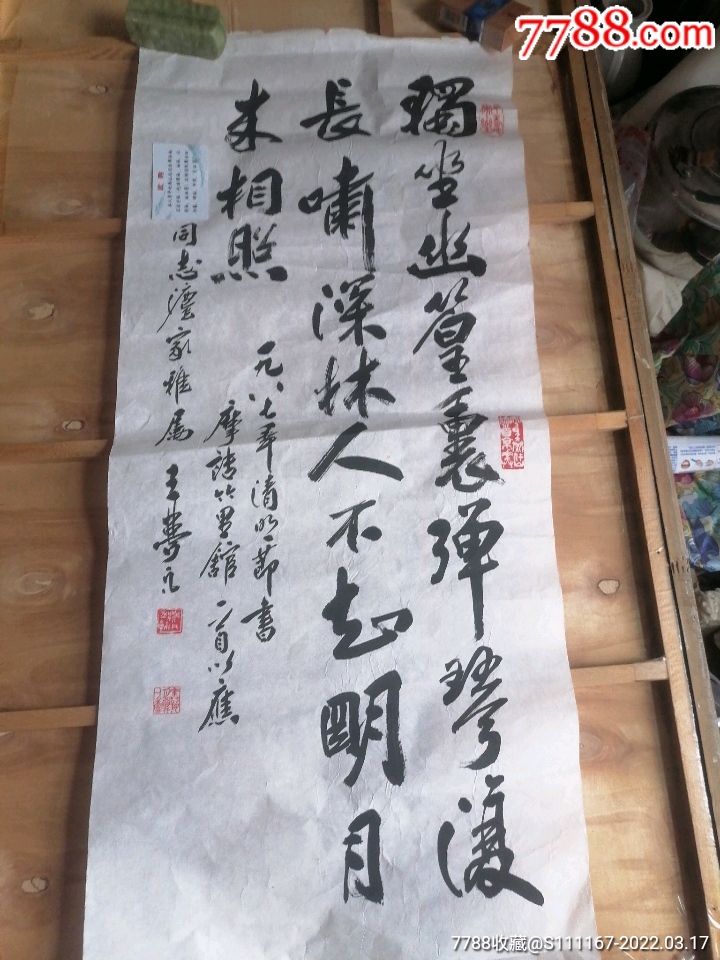 獨坐幽篁裏弹琴復
長嘯深林人不知明月
来相照
一九八七年清明節書
摩詰竹里館一首以應
同志濅家雅属 王夢
7788.com
7788收藏@S111167-2022.03.17